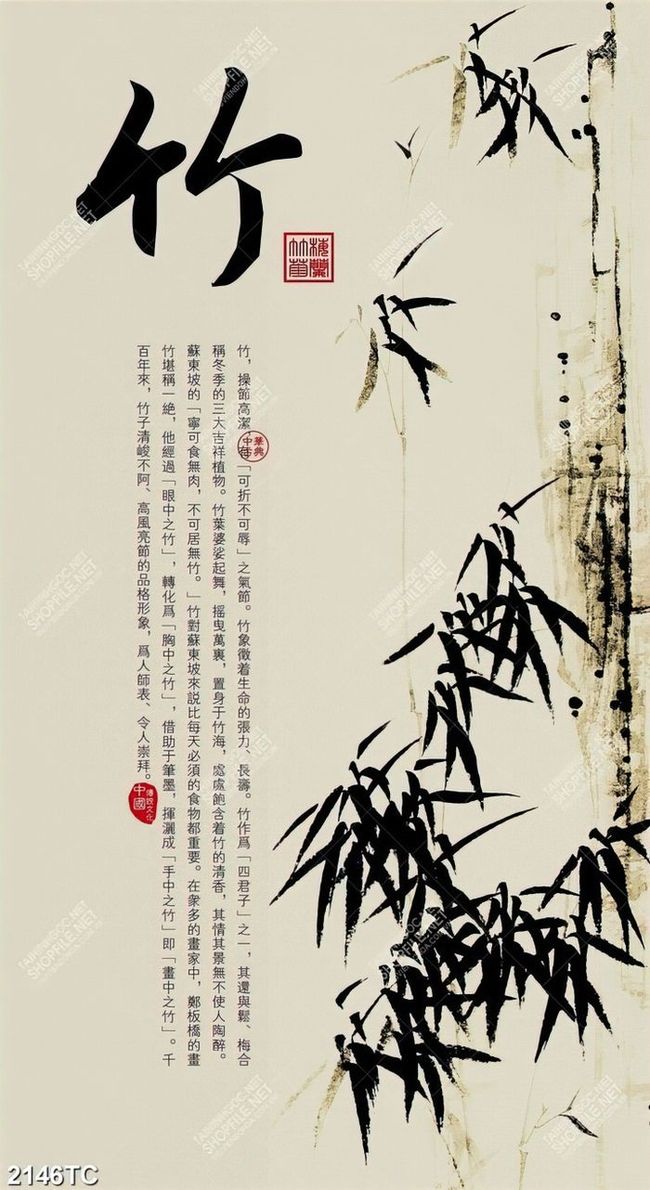 竹
梅蘭
竹菊
竹，操節高潔，有「可折不可辱」之氣節。竹象徵着生命的張力、長壽。竹作爲「四君子」之一，其還與鬆、梅合
稱冬季的三大吉祥植物。竹葉婆娑起舞，摇曳萬裏，置身于竹海，處處飽含着竹的清香，其情其景無不使人陶醉。
蘇東坡的「寧可食無肉，不可居無竹。」竹對蘇東坡來説比每天必須的食物都重要。在衆多的畫家中，鄭板橋的畫
竹堪稱一絶，他經過「眼中之竹」，轉化爲「胸中之竹」，借助于筆墨，揮灑成「手中之竹」即「畫中之竹」。千
百年來，竹子清峻不阿、高風亮節的品格形象，爲人師表、令人崇拜。
傳統文化
中國
SHOPFILE.NET
2146TC